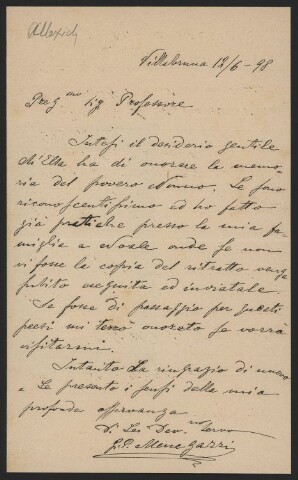 Villabruna 12/6-98
Preg.mo Sig. Professore
Intesi il desiderio gentile
ch'Ella ha di onorare la memo-
ria del povero Nonno. Le sono
riconoscentissimo ed ho fatto
già pratiche presso la mia fa-
miglia a Noale onde se non
vi fosse la copia del ritratto venga
subito eseguita ed inviatale.
Se fosse di passaggio per questi
paesi mi terrò onorato se vorrà
visitarmi.
Intanto La ringrazio di nuovo
e Le presento i sensi della mia
profonda osservanza
Di Lei Dev.mo servo
G.P. Menegazzi